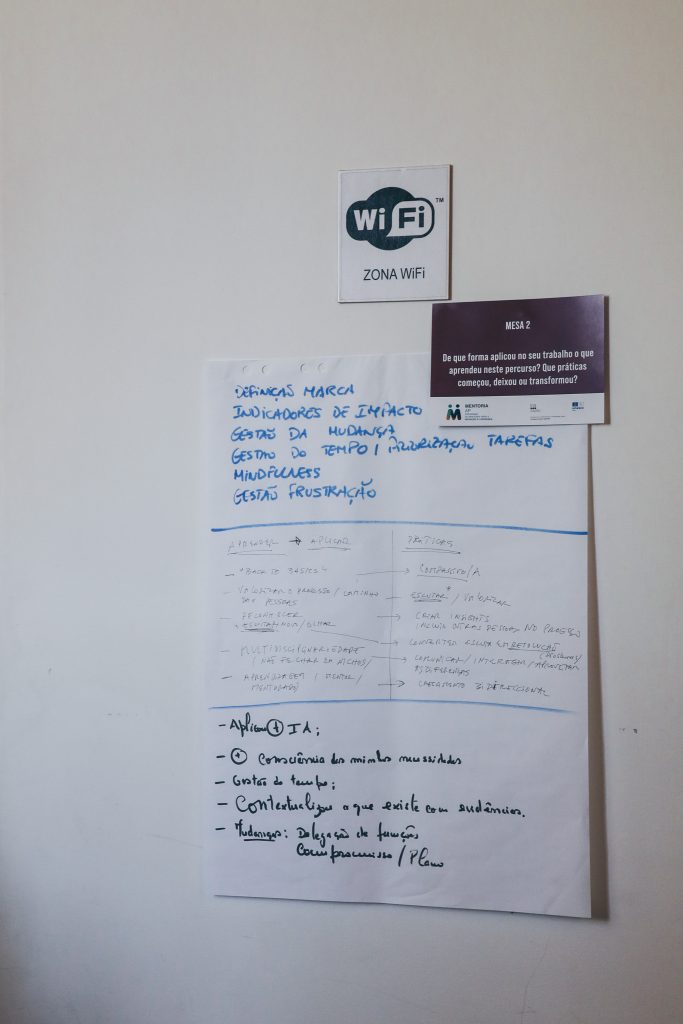 WiFi TM
ZONA WiFi
MESA 2
De que forma aplicou no seu trabalho o que
aprendeu neste percurso? Que práticas
começou, deixou ou transformou?
MENTORIA
AP
DEFINIÇÃO MARCA
INDICADORES DE IMPACTO
GESTÃO DA MUDANÇA
GESTÃO DO TEMPO / PRIORIZAÇÃO TAREFAS
MINDFULNESS
GESTÃO FRUSTRAÇÃO
APRENDER → APLICAR
- "BACK TO BASICS"
- VALORIZAR O PROCESSO / CAMINHO
DAS PESSOAS
- RECONHECER
- MULTIDISCIPLINARIEDADE
- APRENDIZAGEM / MENTOR /
MENTORADO
PRÁTICAS
COMPASSIVO/A
ESCUTAR / VALORIZAR
CRIAR INSIGHTS
INCLUIR OUTRAS PESSOAS NO PROCESSO
CONVERTER ESCUTA EM RESOLUÇÃO
COMUNICAR / INTERAGEM /
AS DIFERENÇAS
CRESCIMENTO BIDIRECIONAL
- Aplicou + IA;
- + Consciência das minhas necessidades
- Gestão do tempo;
- Contextualizar o que existe com evidências.
- Mudanças: Delegação de funções
Compromisso / Plano